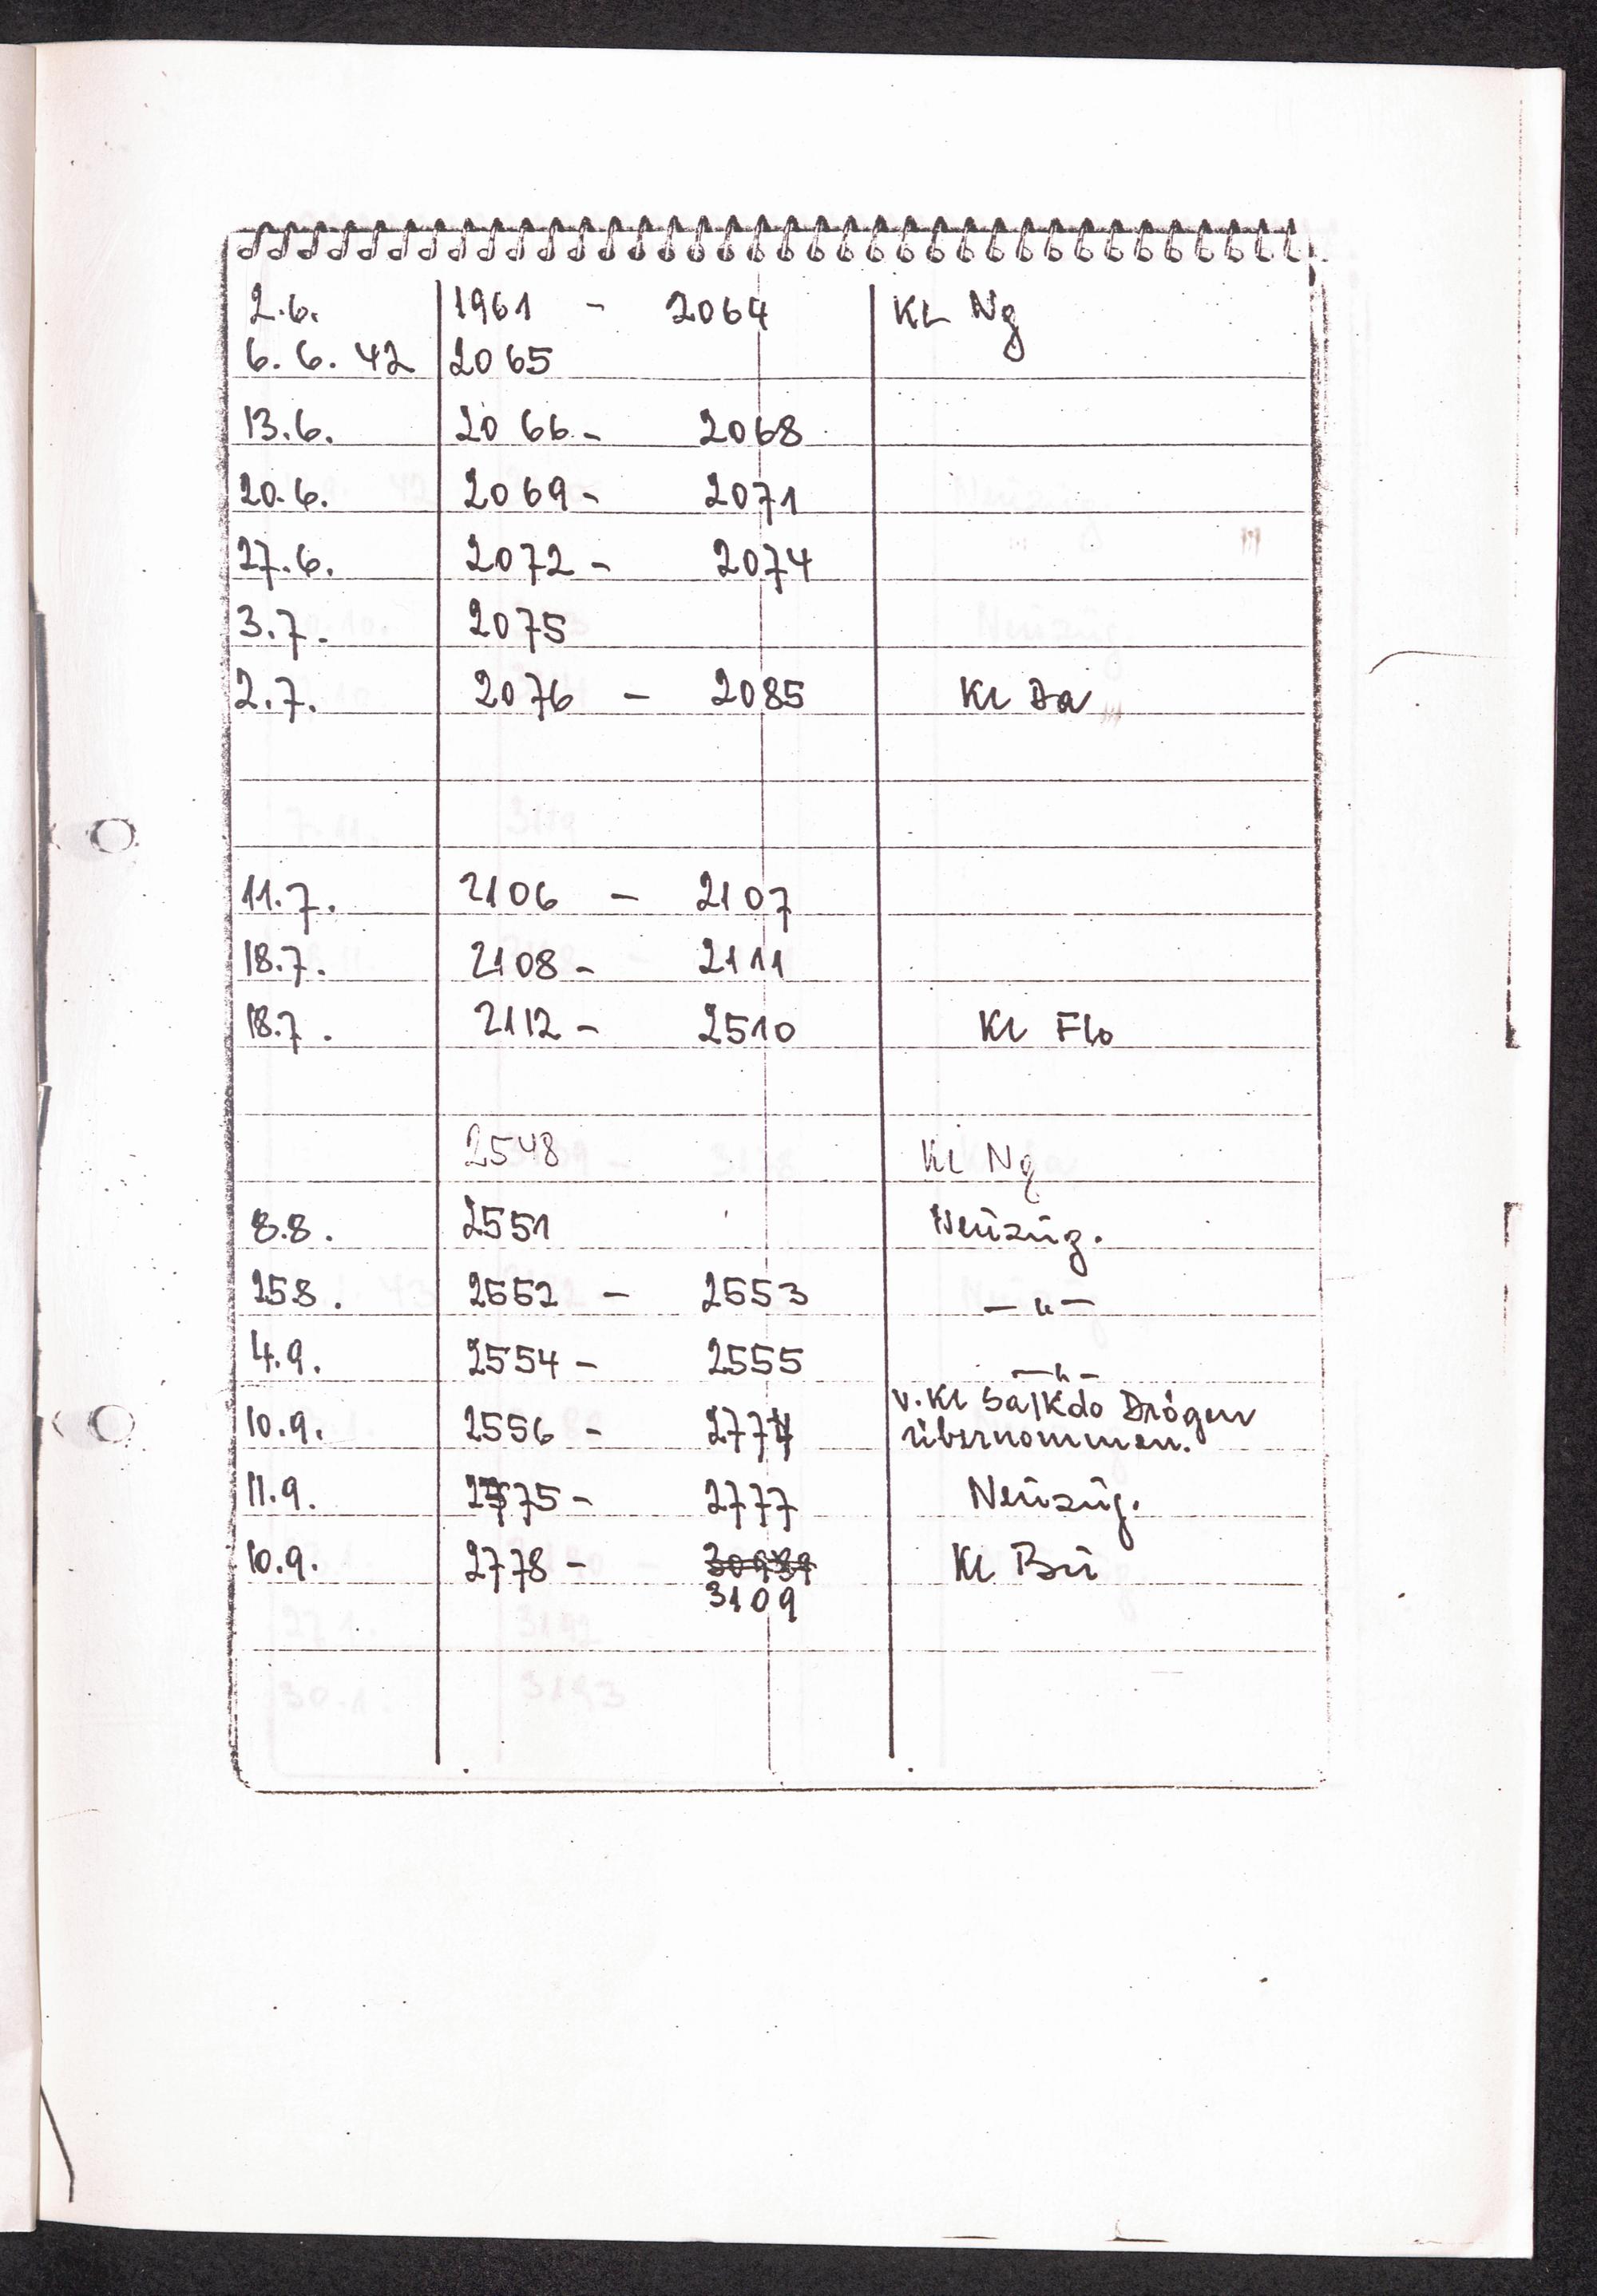 2.6. 1961 - 2064 KL Ng
6.6.42 2065
13.6. 2066 - 2068
20.6. 2069 - 2071
27.6. 2072 - 2074
3.7. 2075
2.7. 2076 - 2085 KL Da
11.7. 2106 - 2107
18.7. 2108 - 2111
18.7. 2112 - 2510 KL Flo
2548 KL Ng
8.8. 2551 Neuzug.
258. 2552 - 2553 — " —
4.9. 2554 - 2555 — " —
v. KL Sa/Kdo Drögen
10.9. 2556 - 2774 übernommen.
11.9. 2775 - 2777 Neuzug.
10.9. 2778 - KL Bu
3109